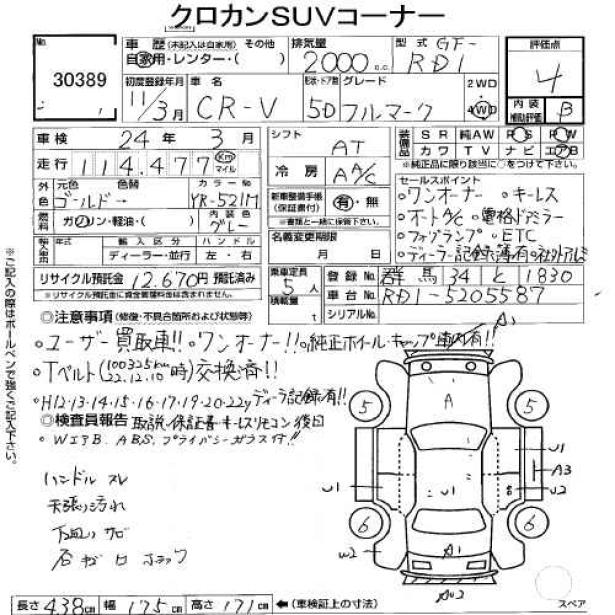 クロカンSUVコーナー
No. 30389
車歴 (未記入は自家用) その他
自家用・レンター・( )
排気量 2000 c.c.
型式 GF-RD1
評価点 4
内装補助評価 B
初度登録年月 11/3月
車名 CR-V
形状・ドア数 5D
グレード フルマーク
2WD
4WD
車検 24年 3月
走行 114,477 Km マイル
シフト AT
冷房 AAC
装備品 SR 純AW PS PW
カワ TV ナビ エアB
※純正品に限り該当に○をつけて下さい。
外色 元色 色替 カラーNo.
ゴールド→ YR-521M
燃料 ガソリン・軽油・( )
内装色 グレー
新車整備手帳(保証書付) 有・無
※書類と一緒に保管下さい。
セールスポイント
○ワンオーナー ○キーレス
○オートA/C ○電格ドミラー
○フォグランプ ○ETC
○ディーラー記録簿有 ○社外アルミ
輸入車用 年式 輸入区分 ハンドル
ディーラー・並行 左・右
名義変更期限
月 日
リサイクル預託金 12,670円 預託済み
※リサイクル預託金に資金管理料金は含まれません。
乗車定員 5人
積載量 t
登録No. 群馬 34 と 1830
車台No. RD1-5205587
シリアルNo.
◎注意事項 (修復・不具合箇所および状態等)
○ユーザー買取車!! ○ワンオーナー!! ○純正ホイル・キャップ車内有!!
○Tベルト(100325km 22.12.10時)交換済!!
○H12・13・14・15・16・17・19・20・22yディーラ記録有!!
◎検査員報告 取説・保証書・キーレスリモコン後日
○WエアB、ABS、プライバシーガラス付!!
ハンドル スレ
天張り汚れ
下廻り サビ
A1
A
5
5
U1
A3
U1
U1
U2
6
6
W2
A1
AU2
長さ 438cm 幅 175cm 高さ 171cm ←(車検証上の寸法)
スペア
※ご記入の際はボールペンで強くご記入下さい。